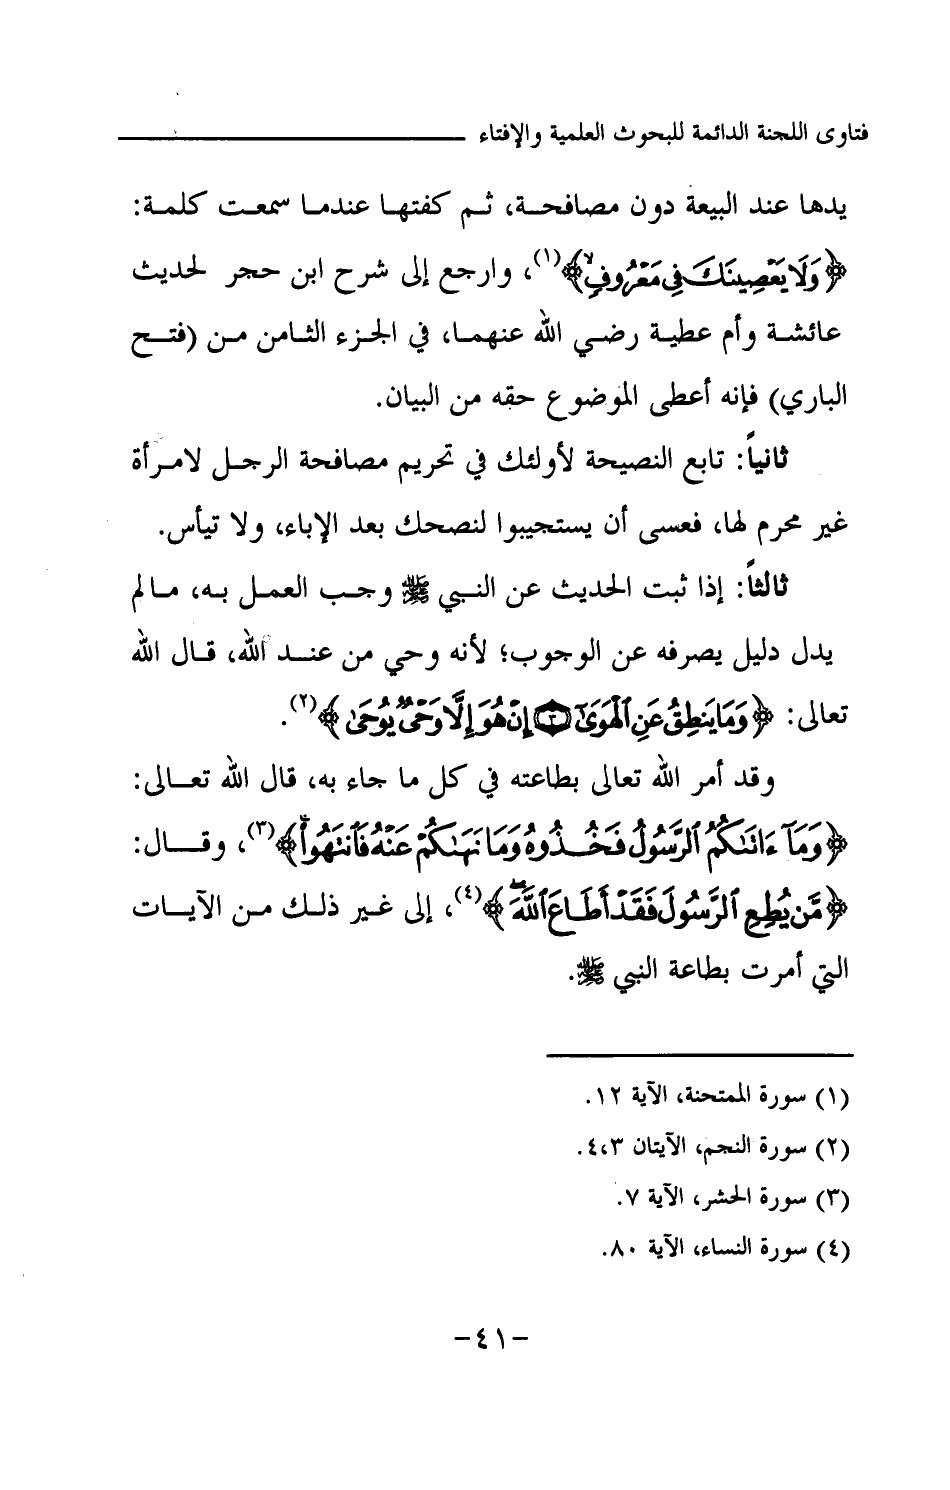 فتاوى اللجنة الدائمة للبحوث العلمية والإفتاء
يدها عند البيعة دون مصافحة، ثم كفتها عندما سمعت كلمة:
﴿وَلَا يَعْصِينَكَ فِي مَعْرُوفٍ﴾(١)، وارجع إلى شرح ابن حجر لحديث
عائشة وأم عطية رضي الله عنهما، في الجزء الثامن من (فتح
الباري) فإنه أعطى الموضوع حقه من البيان.
ثانياً: تابع النصيحة لأولئك في تحريم مصافحة الرجل لامرأة
غير محرم لها، فعسى أن يستجيبوا لنصحك بعد الإباء، ولا تيأس.
ثالثاً: إذا ثبت الحديث عن النبي ﷺ وجب العمل به، مالم
يدل دليل يصرفه عن الوجوب؛ لأنه وحي من عند الله، قال الله
تعالى: ﴿وَمَا يَنطِقُ عَنِ ٱلْهَوَىٰٓ ٣ إِنْ هُوَ إِلَّا وَحْىٌ يُوحَىٰ﴾(٢).
وقد أمر الله تعالى بطاعته في كل ما جاء به، قال الله تعالى:
﴿وَمَآ ءَاتَىٰكُمُ ٱلرَّسُولُ فَخُذُوهُ وَمَا نَهَىٰكُمْ عَنْهُ فَٱنتَهُوا۟ۚ﴾(٣)، وقال:
﴿مَّن يُطِعِ ٱلرَّسُولَ فَقَدْ أَطَاعَ ٱللَّهَۖ﴾(٤)، إلى غير ذلك من الآيات
التي أمرت بطاعة النبي ﷺ.
(١) سورة الممتحنة، الآية ١٢.
(٢) سورة النجم، الآيتان ٤،٣.
(٣) سورة الحشر، الآية ٧.
(٤) سورة النساء، الآية ٨٠.
-٤١-